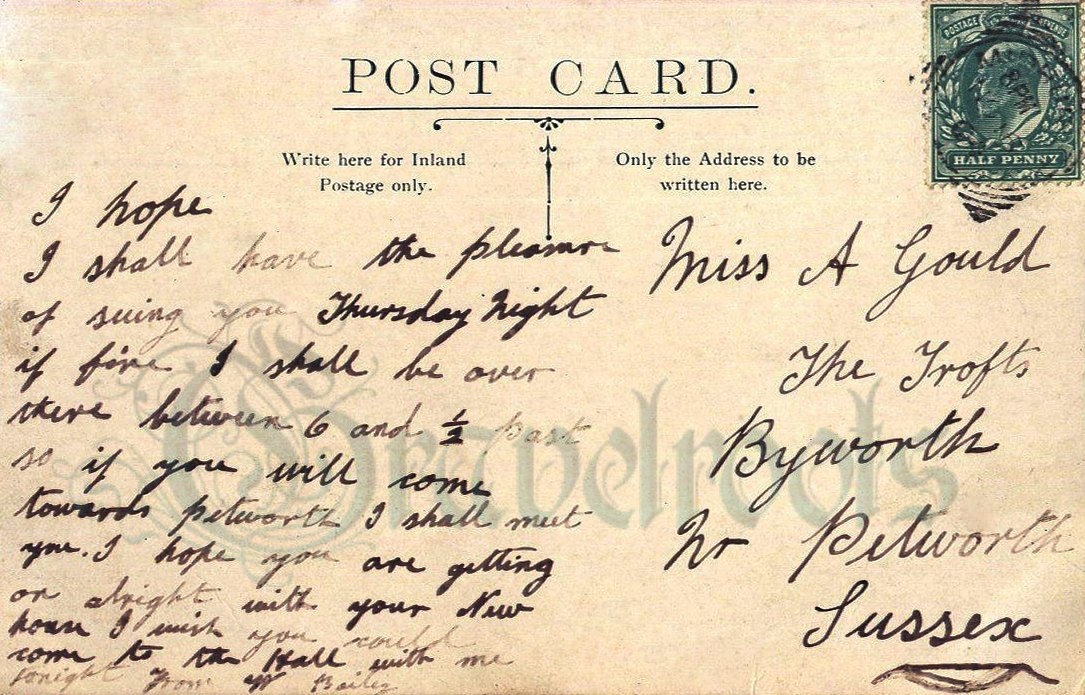 POST CARD.
Write here for Inland
Postage only.
Only the Address to be
written here.
POSTAGE
HALF PENNY
8 PM
I hope
I shall have the pleasure
of seeing you Thursday Night
if fine I shall be over
there between 6 and ½ past
so if you will come
towards petworth I shall meet
you. I hope you are getting
on alright with your New
house I wish you could
come to the Hall with me
tonight From W Bailey
Miss A Gould
The Trofts
Byworth
Nr Petworth
Sussex
Gravelroots